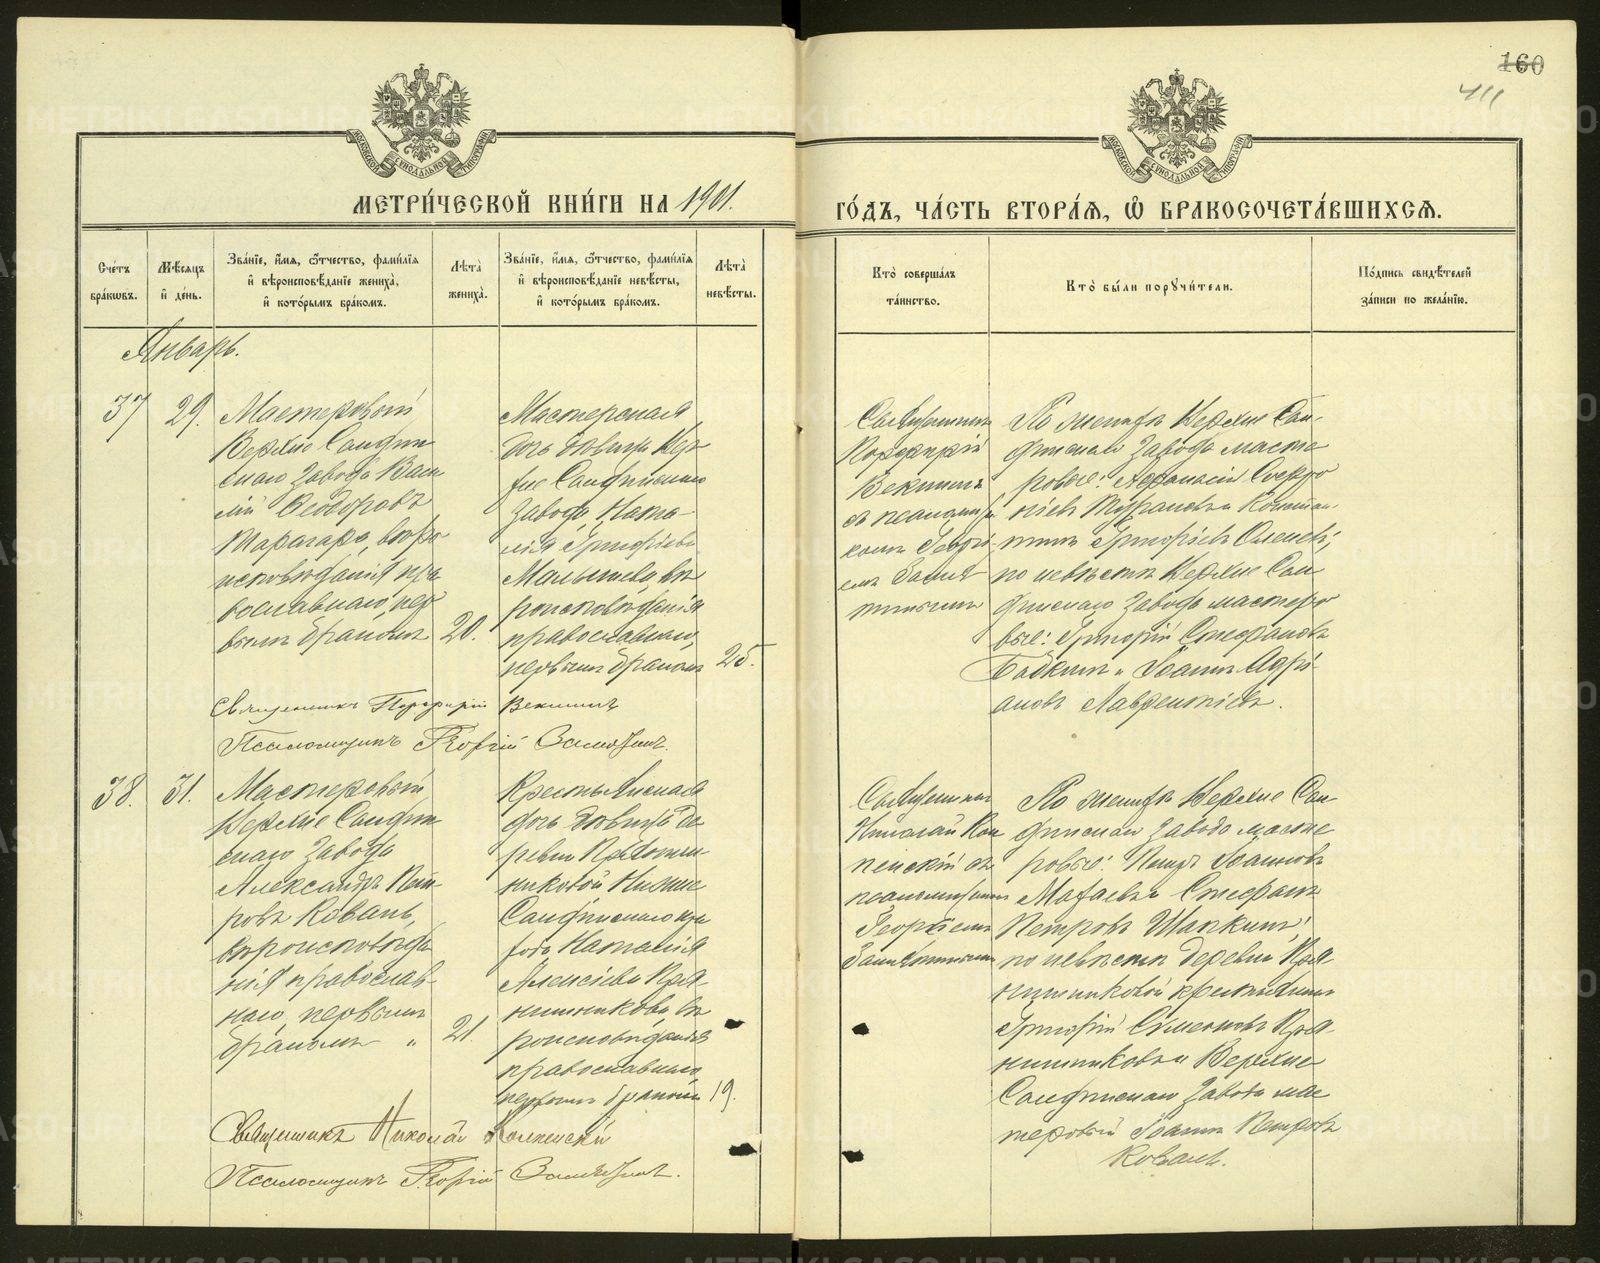 160
411
МЕТРИ́ЧЕСКОЙ КНИ́ГИ НА 1901.
ГО́ДЪ, ЧА́СТЬ ВТОРА́Я, Ѽ БРАКОСОЧЕТА́ВШИХСЯ.
Сче́тъ бра́кѡвъ.
Мѣ́сяцъ и҆ де́нь.
Зва́нїе, и҆́мя, ѻ҆́тчество, фамилїя
и҆ вѣроисповѣ́данїе жениха̀,
и҆ кото́рымъ бра́комъ.
Лѣта̀ жениха̀.
Зва́нїе, и҆́мя, ѻ҆́тчество, фамилїя
и҆ вѣроисповѣ́данїе невѣ́сты,
и҆ кото́рымъ бра́комъ.
Лѣта̀ невѣ́сты.
Кто̀ соверша́лъ
та́инство.
Кто̀ бы́ли поручи́тели.
По́дпись свидѣ́телей
за́писи по жела́нїю.
Январь.
37
29.
Мастеровый
Верхне Салдин
скаго завода Васи
лій Ѳеодоровъ
веро
исповѣданія пра
вославнаго, пер
вымъ бракомъ
20.
Мастерская
дочь дѣвица Вер
хне Салдинскаго
завода Ната
лія Григоріева
Малышева, вѣ
роисповѣданія
православнаго,
первымъ бракомъ
25.
Священникъ
Порфирій
Векшинъ
съ псаломщи
комъ Георгі
емъ
По женихѣ Верхне Сал
динскаго завода масте
ровые: Аѳанасій
Григоріевъ
по невѣстѣ Верхне Сал
динскаго завода мастеро
вые: Григорій Стефановъ
Бабкинъ и Іоаннъ Адрі
ановъ Лаврентіевъ.
Священникъ Порфирій Векшинъ
Псаломщикъ Георгій
38.
31.
Мастеровый
Верхне Салдин
скаго завода
Александръ Пет
ровъ Коваль,
вѣроисповѣда
нія православ
наго, первымъ
бракомъ "
21.
Крестьянская
дочь дѣвица де
ревни Прянични
никовой Нижне
Салдинскаго при
хода Наталія
Алексіева Пря
нишникова, вѣ
роисповѣданія
православнаго
первымъ бракомъ
19.
Священникъ
Николай Коп
пенскій съ
псаломщикомъ
Георгіемъ
По женихѣ Верхне Сал
динскаго завода масте
ровые: Петръ Іоанновъ
и Стефанъ
Петровъ Шапкинъ;
по невѣстѣ деревни Пря
нишниковой крестьянинъ
Григорій Сѵмеоновъ Пря
нишниковъ и Верхне
Салдинскаго завода мас
теровый Іоаннъ Петровъ
Коваль.
Священникъ Николай
Псаломщикъ Георгій